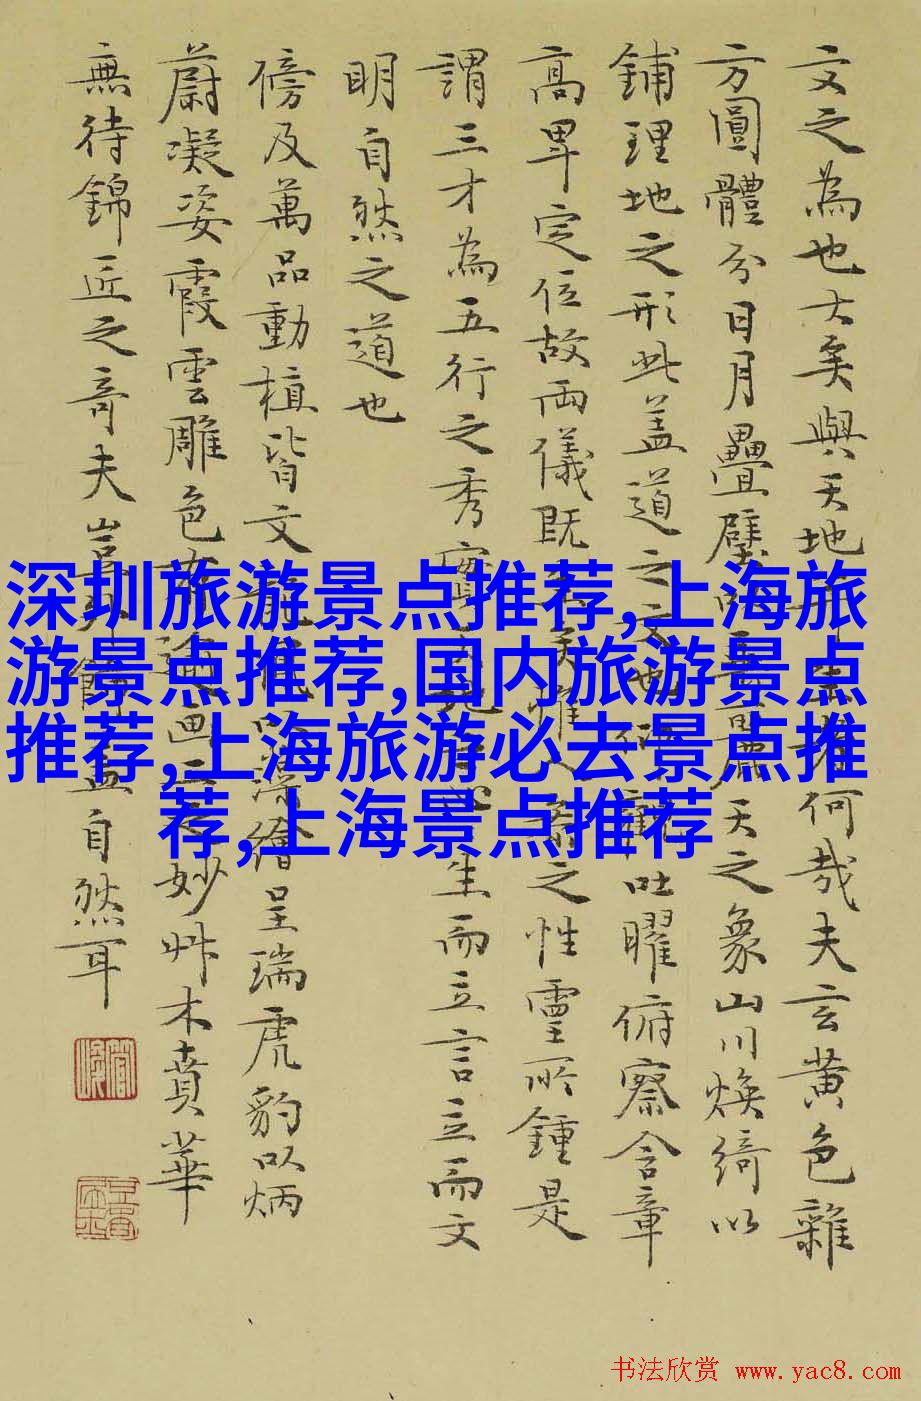 文之為也大矣與天地者何哉夫玄黃色雜
方圓體分日月疊璧麗天之象山川煥綺以
鋪理地之形此盖道之文也吐曜俯察含章
高卑定位故兩儀既之性靈所鍾是
謂三才為五行之秀實生而立言立而文
明自然之道也
傍及萬品動植皆文以繪呈瑞虎豹以炳
蔚凝姿霞雲雕色畫妙艸木賁華
無待錦匠之奇夫豈外飾盖自然耳
深圳旅游景点推荐,上海旅
游景点推荐,国内旅游景点
推荐,上海旅游必去景点推
荐,上海景点推荐
书法欣赏 www.yac8.com